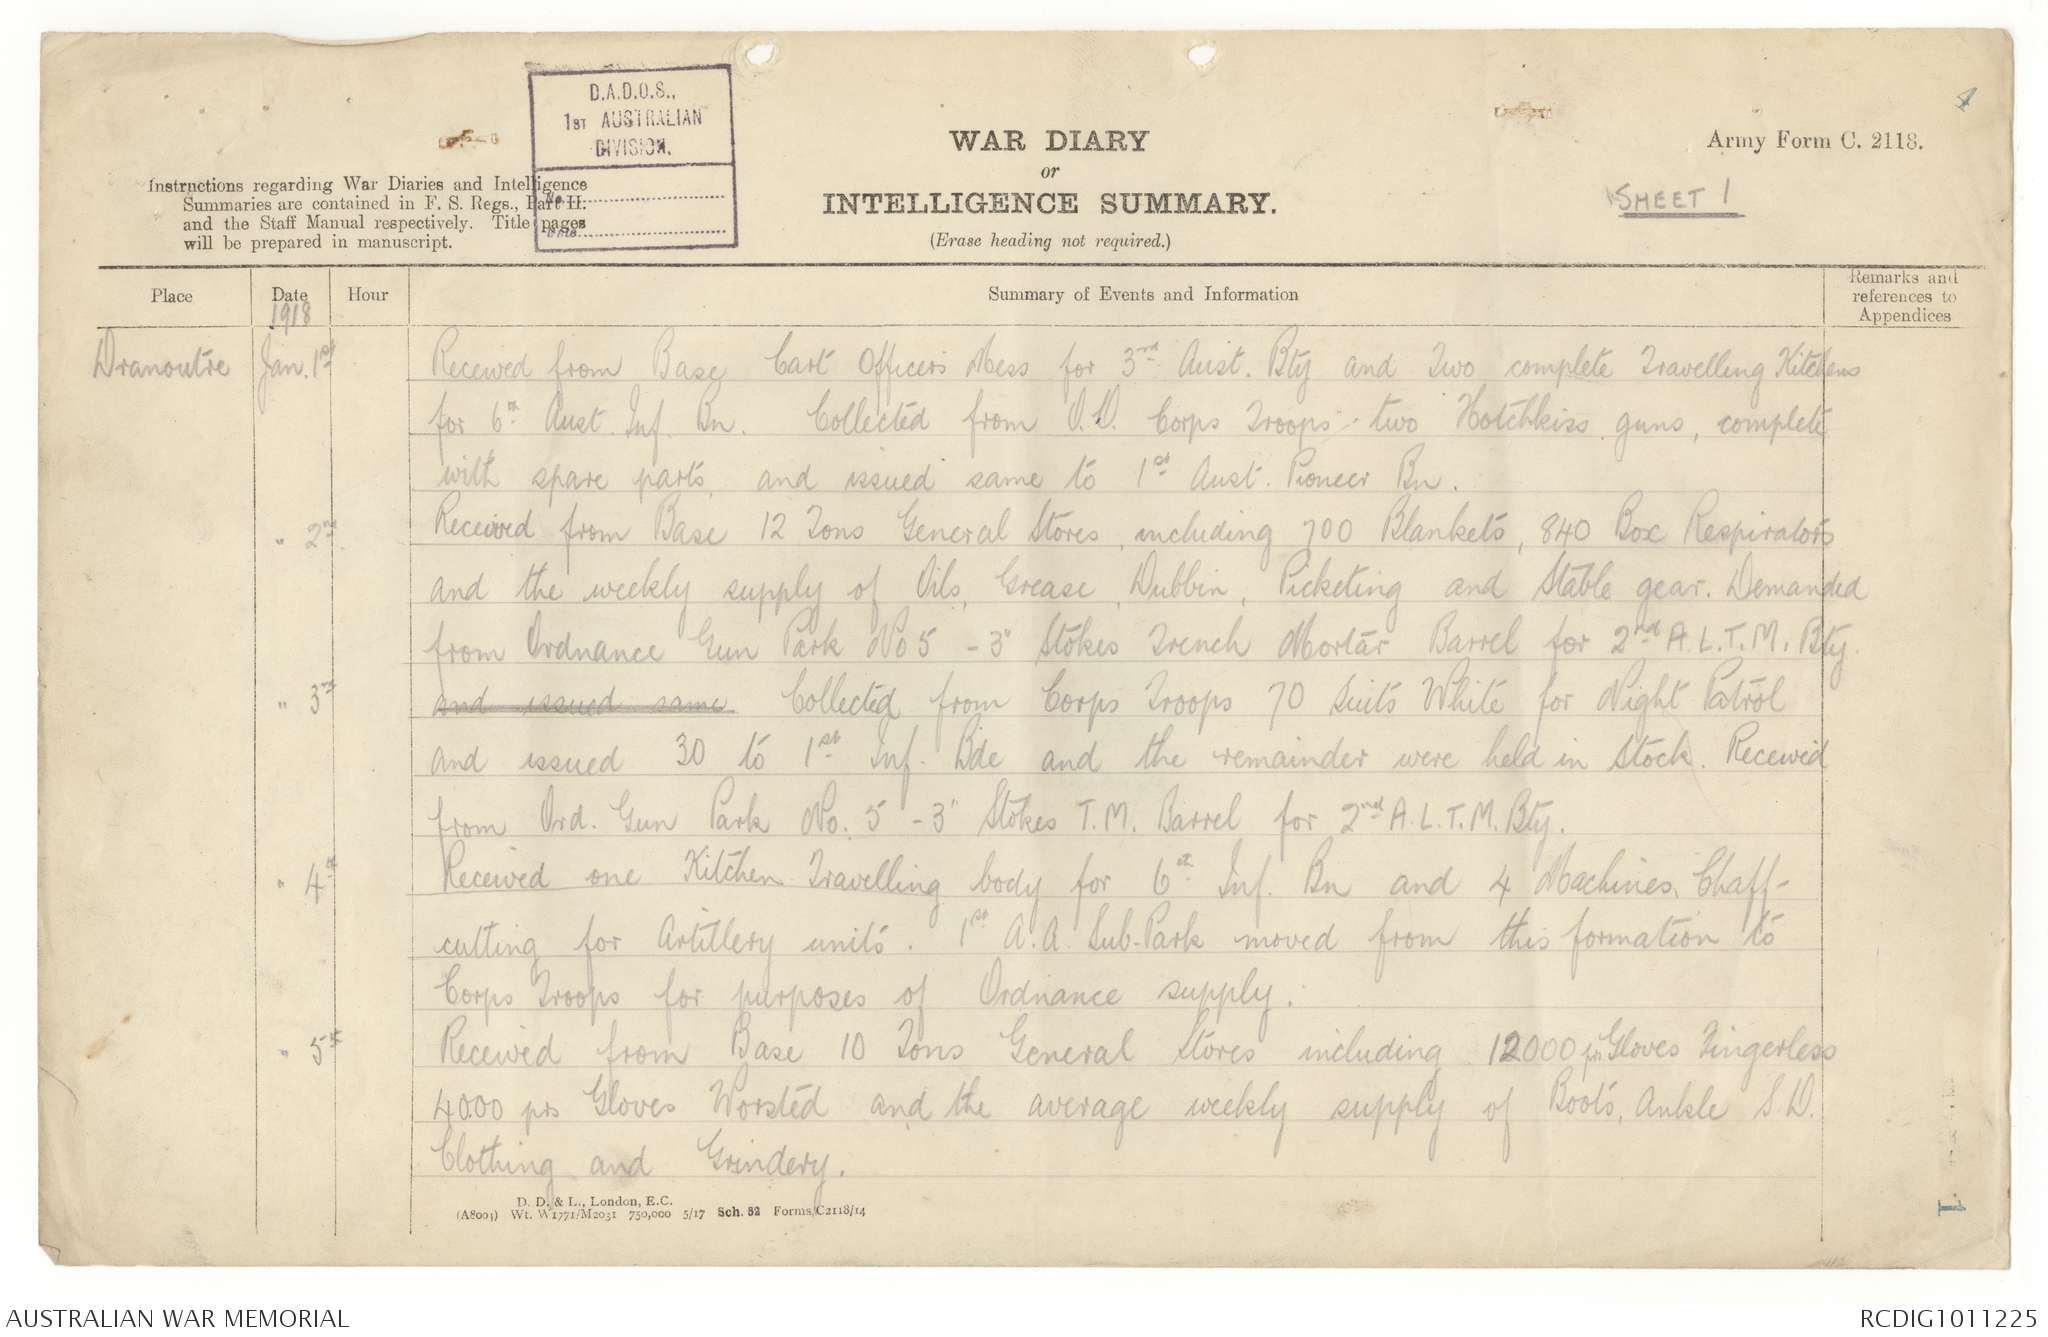 D.A.D.O.S.,
1ST AUSTRALIAN
DIVISION.
No.
Date
WAR DIARY
or
INTELLIGENCE SUMMARY.
(Erase heading not required.)
Army Form C. 2118.
SHEET 1
Instructions regarding War Diaries and Intelligence
Summaries are contained in F. S. Regs., Part II.
and the Staff Manual respectively. Title pages
will be prepared in manuscript.
Place Date Hour Summary of Events and Information Remarks and references to Appendices
1918
Dranoutre Jan. 1st Received from Base Cart Officers Mess for 3rd Aust. Bty and Two complete Travelling Kitchens
for 6th Aust. Inf. Bn. Collected from O.O. Corps Troops - two Hotchkiss guns, complete
with spare parts, and issued same to 1st Aust. Pioneer Bn.
" 2nd Received from Base 12 Tons General Stores, including 700 Blankets, 840 Box Respirators
and the weekly supply of Oils, Grease, Dubbin, Picketing and Stable gear. Demanded
from Ordnance Gun Park No 5 - 3" Stokes Trench Mortar Barrel for 2nd A.L.T.M. Bty.
" 3rd and issued same Collected from Corps Troops 70 Suits White for Night Patrol
and issued 30 to 1st Inf. Bde and the remainder were held in Stock. Received
from Ord. Gun Park No. 5 - 3" Stokes T.M. Barrel for 2nd A.L.T.M. Bty.
" 4th Received one Kitchen Travelling body for 6th Inf. Bn and 4 Machines, Chaff-
cutting for Artillery units. 1st A.A. Sub-Park moved from this formation to
Corps Troops for purposes of Ordnance supply.
" 5th Received from Base 10 Tons General Stores including 12000 prs Gloves Fingerless
4000 prs Gloves Worsted and the average weekly supply of Boots, Ankle S.D.
Clothing and Grindery.
D. D. & L., London, E.C.
(A8004) Wt. W1771/M2031 750,000 5/17 Sch. 82 Forms/C2118/14
1
AUSTRALIAN WAR MEMORIAL
RCDIG1011225